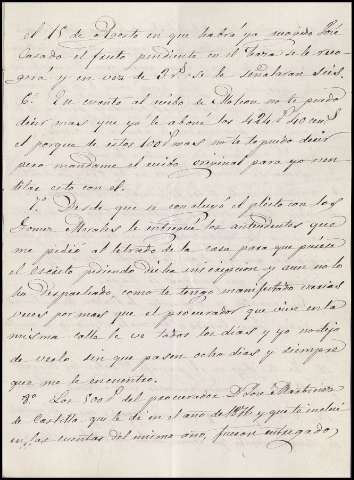 el 15 de Agosto en que habrá ya sacado José
Casado el fruto pendiente en el haza se le reco-
gera y en vez de 2 p.s se le señalaran seis.
6.º En cuanto al recibo de Plateon no te puedo
decir mas que yo le aboné los 424 r.s 40 cen.s
el porque de estos 100 r.s mas no te lo puedo decir
pero mandame el recibo original para yo ven-
tilar esto con el.
7.º Desde que se concluyó el pleito con los
Gomez Morales le entregué los antecedentes que
me pidió al letrado de la casa para que pusiese
el escrito pidiendo dicha inscripcion y aun no lo
ha despachado, como te tengo manifestado varias
veces por mas que el procurador que vive en la
misma calle le ve todos los dias y yo no dejo
de verlo sin que pasen ocho dias y siempre
que me le encuentro.
8.º Los 500 r.s del procurador D. José Martinez
de Castilla que te di en el año de 1876 y que te incluí
en las cuentas del mismo año, fueron entregados